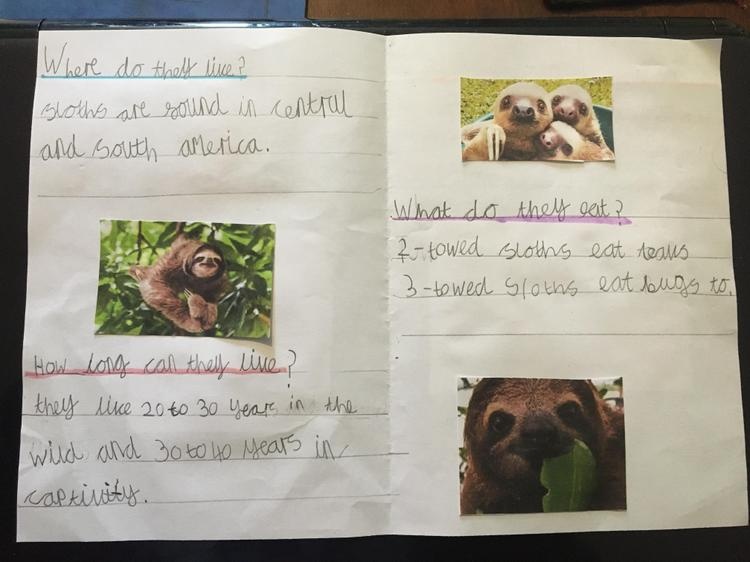 Where do they live?
sloths are found in central
and south america.
How long can they live?
they live 20 to 30 years in the
wild and 30 to 40 years in
captivity.
What do they eat?
2-towed sloths eat leavs
3-towed sloths eat bugs to.